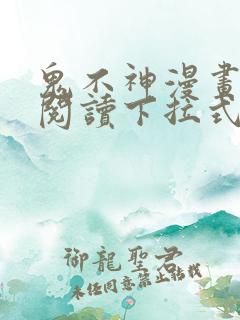 鬼不神漫畫
閱讀下拉式
御龍聖君
未經同意禁止轉載